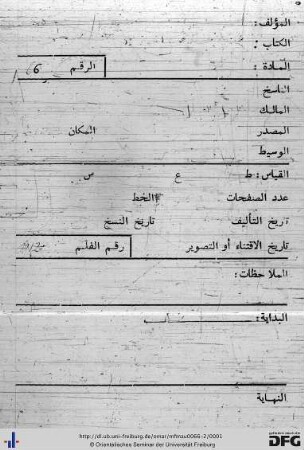 المؤلف:
الكتاب:
المادة: الرقم 6
الناسخ
المالك
المصدر المكان
الوسيط
القياس: ط ع ص
عدد الصفحات الخط
تاريخ التأليف تاريخ النسخ
تاريخ الاقتناء أو التصوير رقم الفلم
الملاحظات:
البداية:
النهاية
http://dl.ub.uni-freiburg.de/omar/mftrau0066-2/0001
© Orientalisches Seminar der Universität Freiburg
DFG